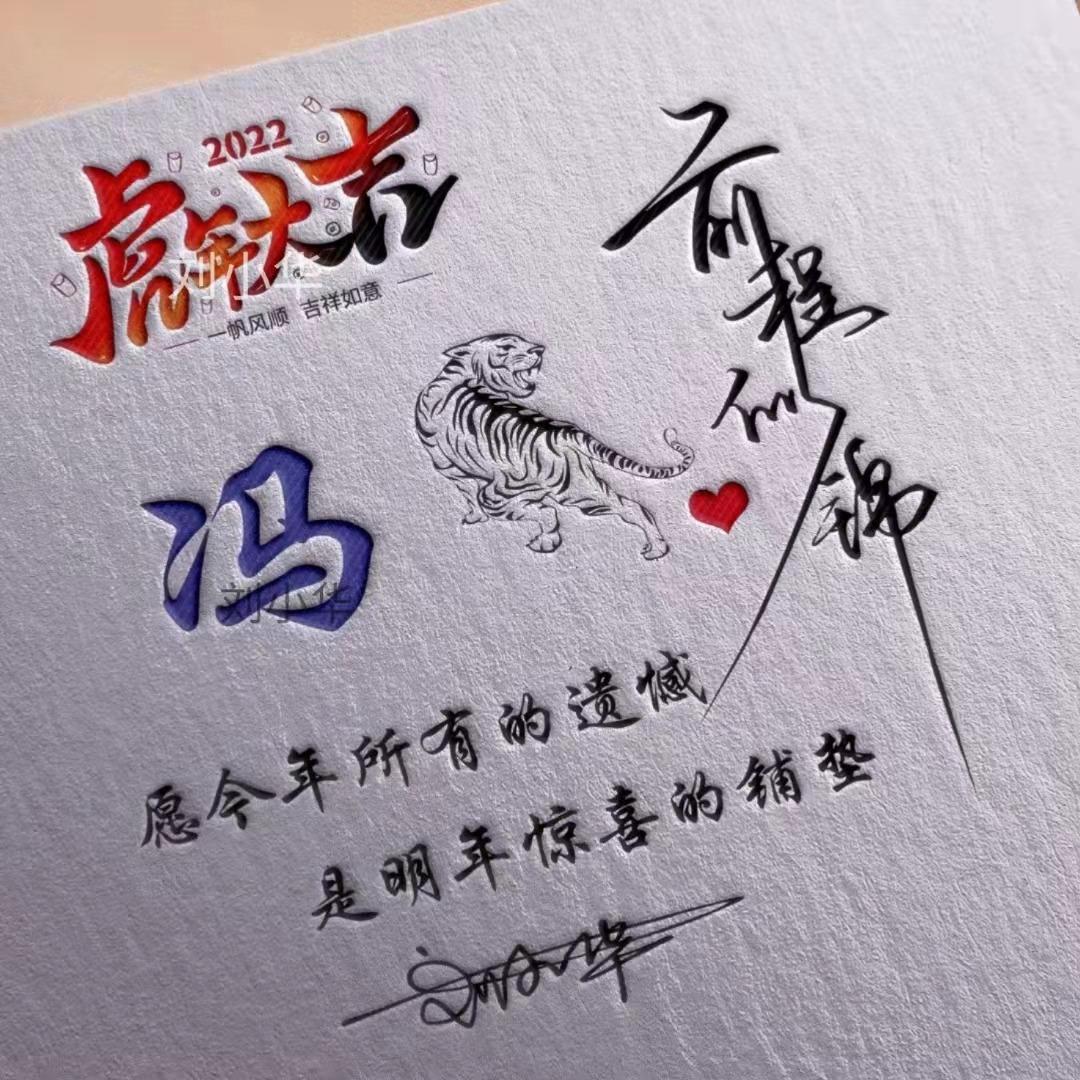 2022
虎年大吉
刘小华
一帆风顺 吉祥如意
前程似锦
冯
刘小华
愿今年所有的遗憾
是明年惊喜的铺垫
刘小华